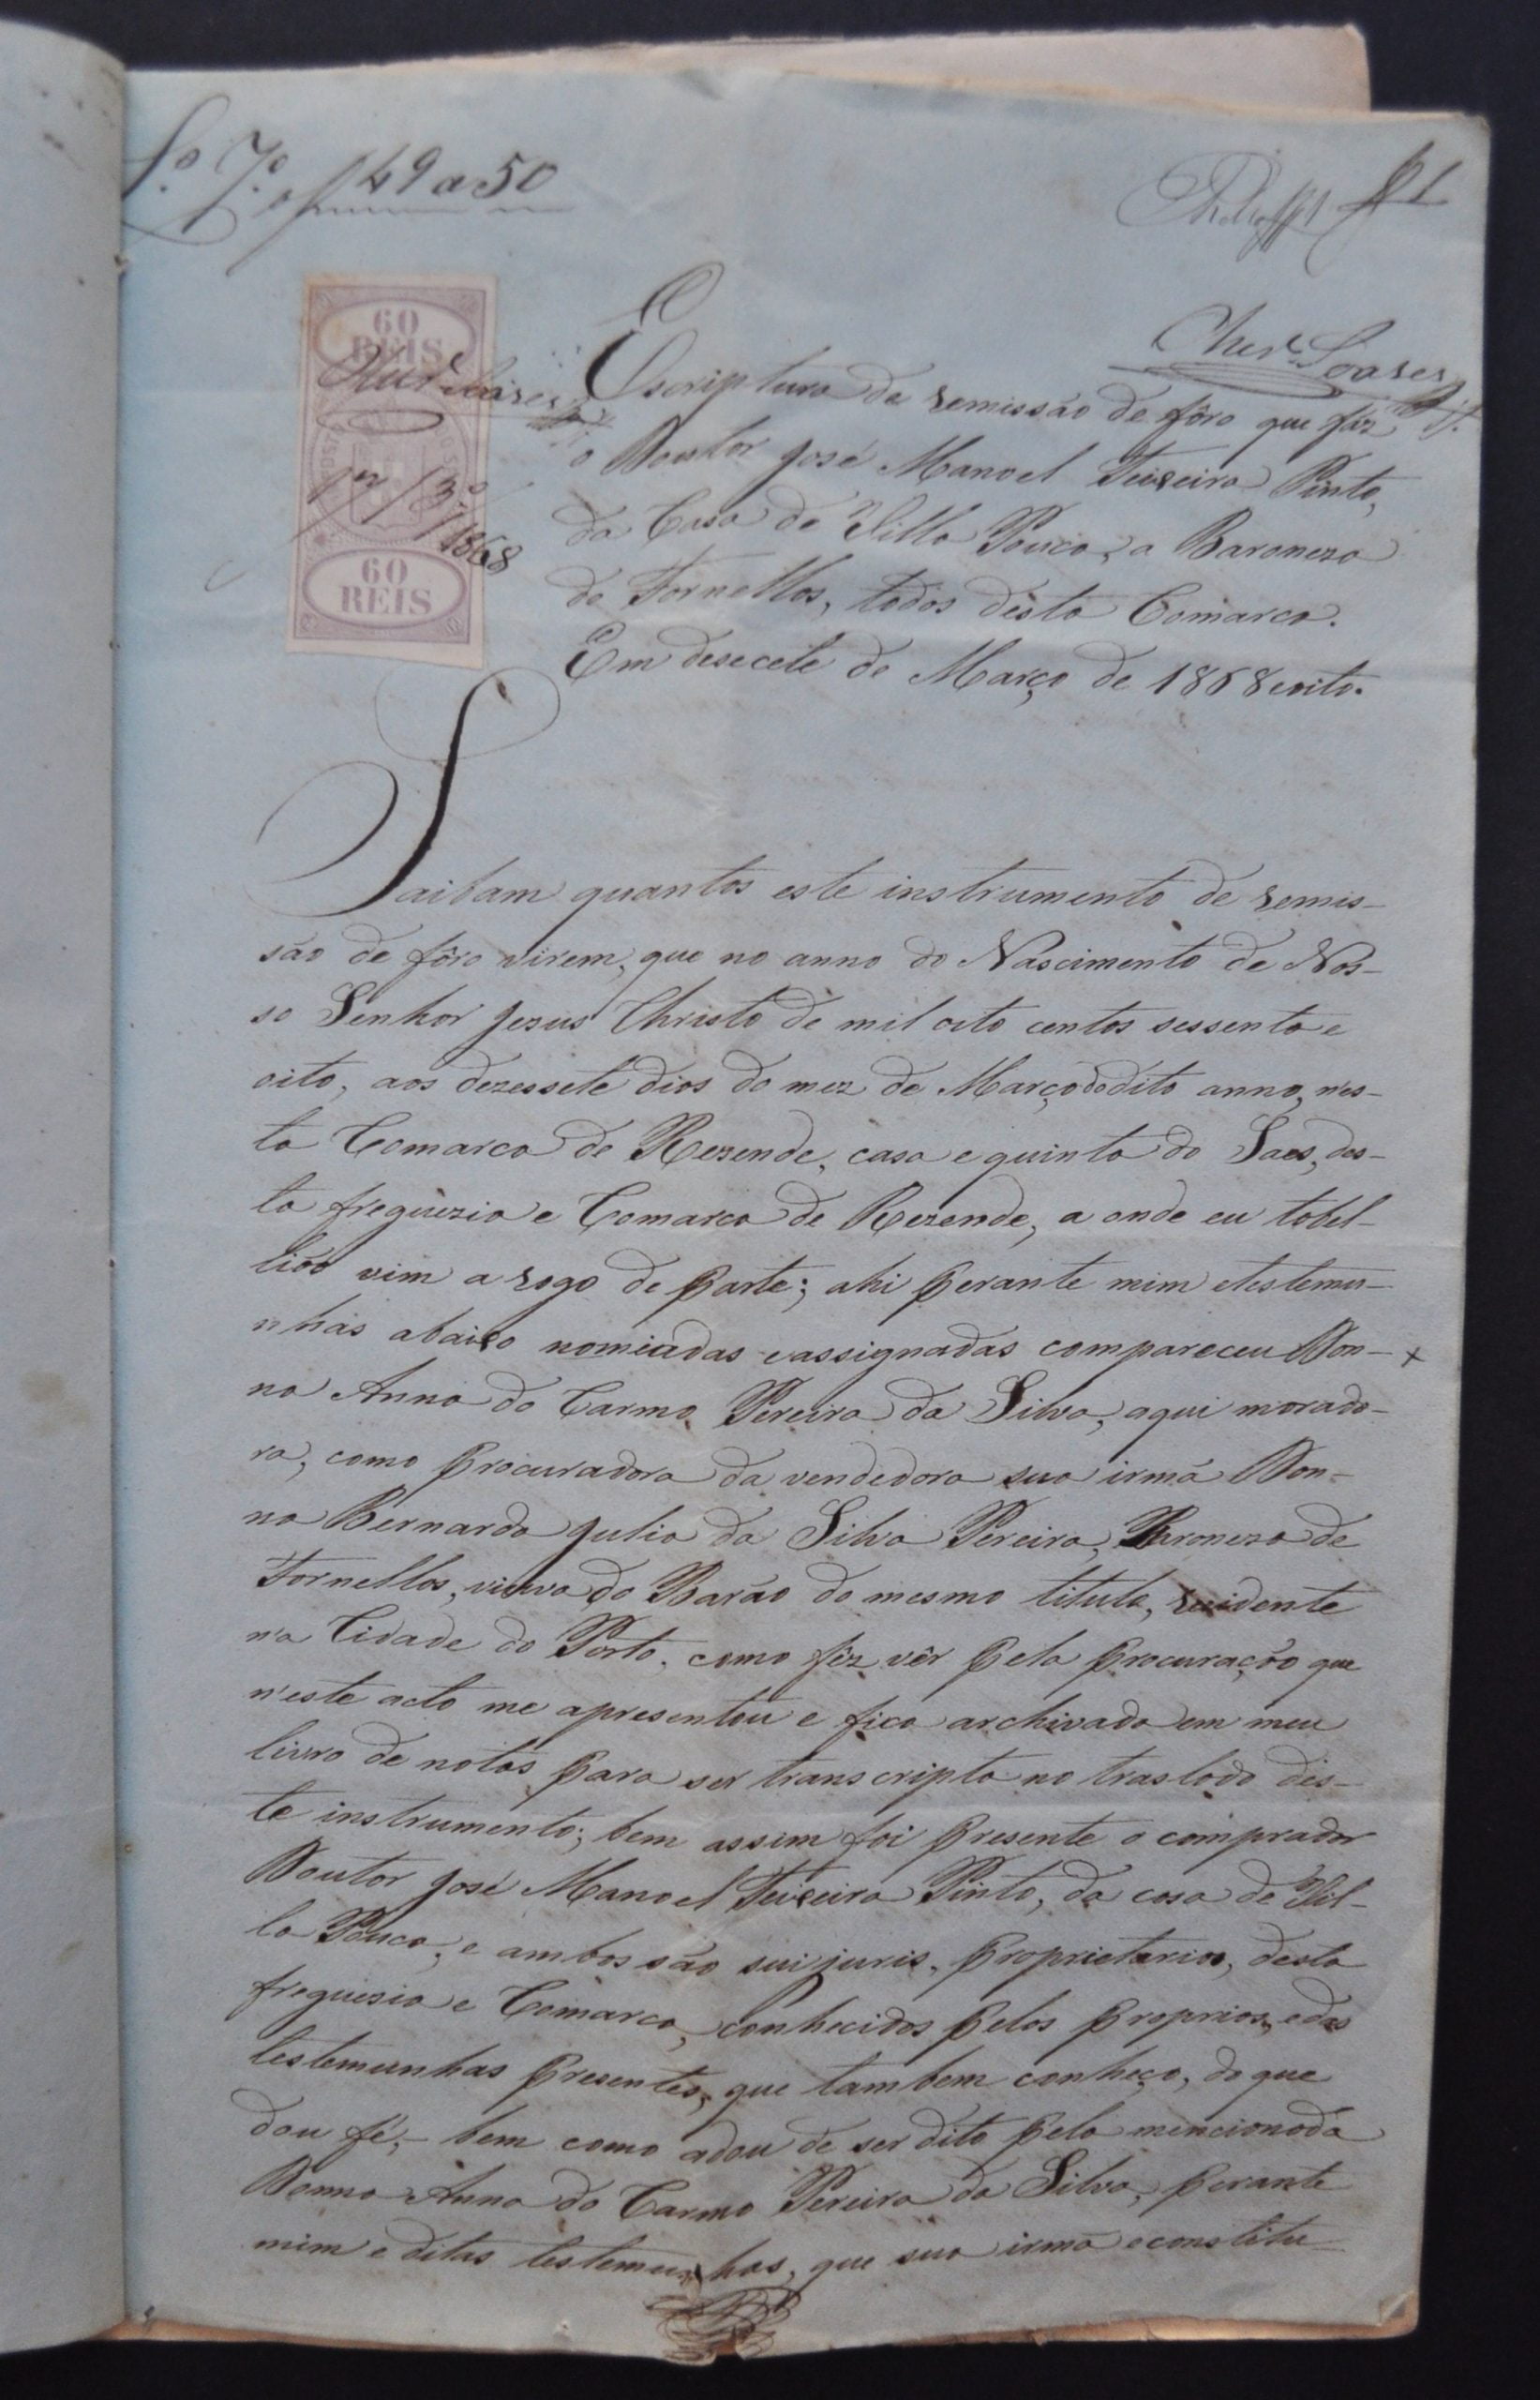 L.º 7.º f 49 a 50
f 1
60
REIS
17/3º/1868
60
REIS
Soares
Escriptura de remissão de fôro que fáz
o Doutor José Manoel Teixeira Pinto,
da Casa de Villa Pouca, a Baroneza
de Fornellos, todos désta Comarca.
Em desecete de Março de 1868 e oito.
Saibam quantos este instrumento de remis-
são de fôro virem, que no anno do Nascimento de Nos-
so Senhor Jezus Christo de mil oito centos sessenta e
oito, aos dezessete dias do mez de Março do dito anno, n'es-
ta Comarca de Rezende, casa e quinta do Paes, des-
ta freguezia e Comarca de Rezende, a onde eu tabel-
lião vim a rogo de parte; ahi perante mim e testemu-
nhas abaixo nomiadas e assignadas compareceu Don-
na Anna do Carmo Pereira da Silva, aqui morado-
ra, como procuradora da vendedora sua irmã Don-
na Bernarda Julia da Silva Pereira, Baroneza de
Fornellos, viuva do Barão do mesmo titulo, residente
na Cidade do Porto, como fêz vêr pela procuração que
n'este acto me apresentou e fica archivada em meu
livro de notas para ser transcripta no traslado des-
te instrumento; bem assim foi presente o comprador
Doutor José Manoel Teixeira Pinto, da casa de Vil-
la Pouca, e ambos são sui juris, proprietarios, desta
freguesia e Comarca, conhecidos pelos proprios, e das
testemunhas presentes, que tambem conheço, do que
dou fé, - bem como a dou de ser dito pela mencionada
Donna Anna do Carmo Pereira da Silva, perante
mim e ditas testemunhas, que sua irmã e constitu-